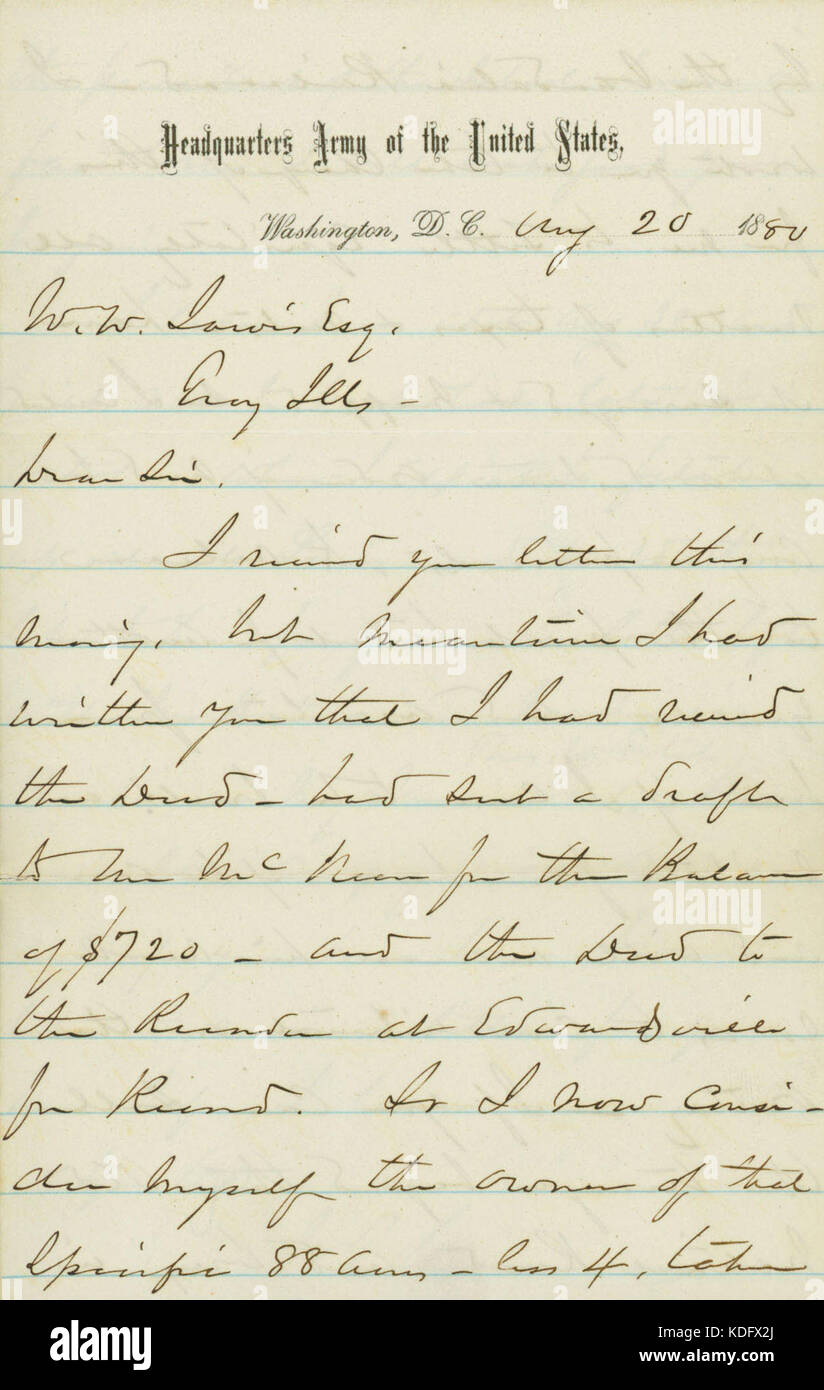 Headquarters Army of the United States,
Washington, D. C. Aug 20 1880
W. W. Jarvis Esq.
Troy Ills -
Dear Sir.
I received your letter this
morning, but meantime I had
written you that I had received
the Deed - had sent a draft
to Mr Mc Kean for the Balance
of $720 - and the Deed to
the Recorder at Edwardsville
for Record. So I now consi-
der myself the owner of that
Specific 88 acres - less 4, taken
alamy
Image ID: KDFX2J
www.alamy.com